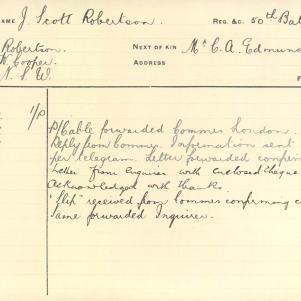 NAME J. Scott Robertson. REG. &C. 50th Bat
Robertson. NEXT OF KIN Mr C. A. Edmund
Cooper. ADDRESS
N.S.W.
P/Cable forwarded Commrs London
Reply from Commrs. Information sent
per telegram. Letter forwarded confirm
Letter from enquirer with enclosed cheque
Acknowledged with thanks.
"Slip" received from Commrs confirming c
Same forwarded Inquirer.